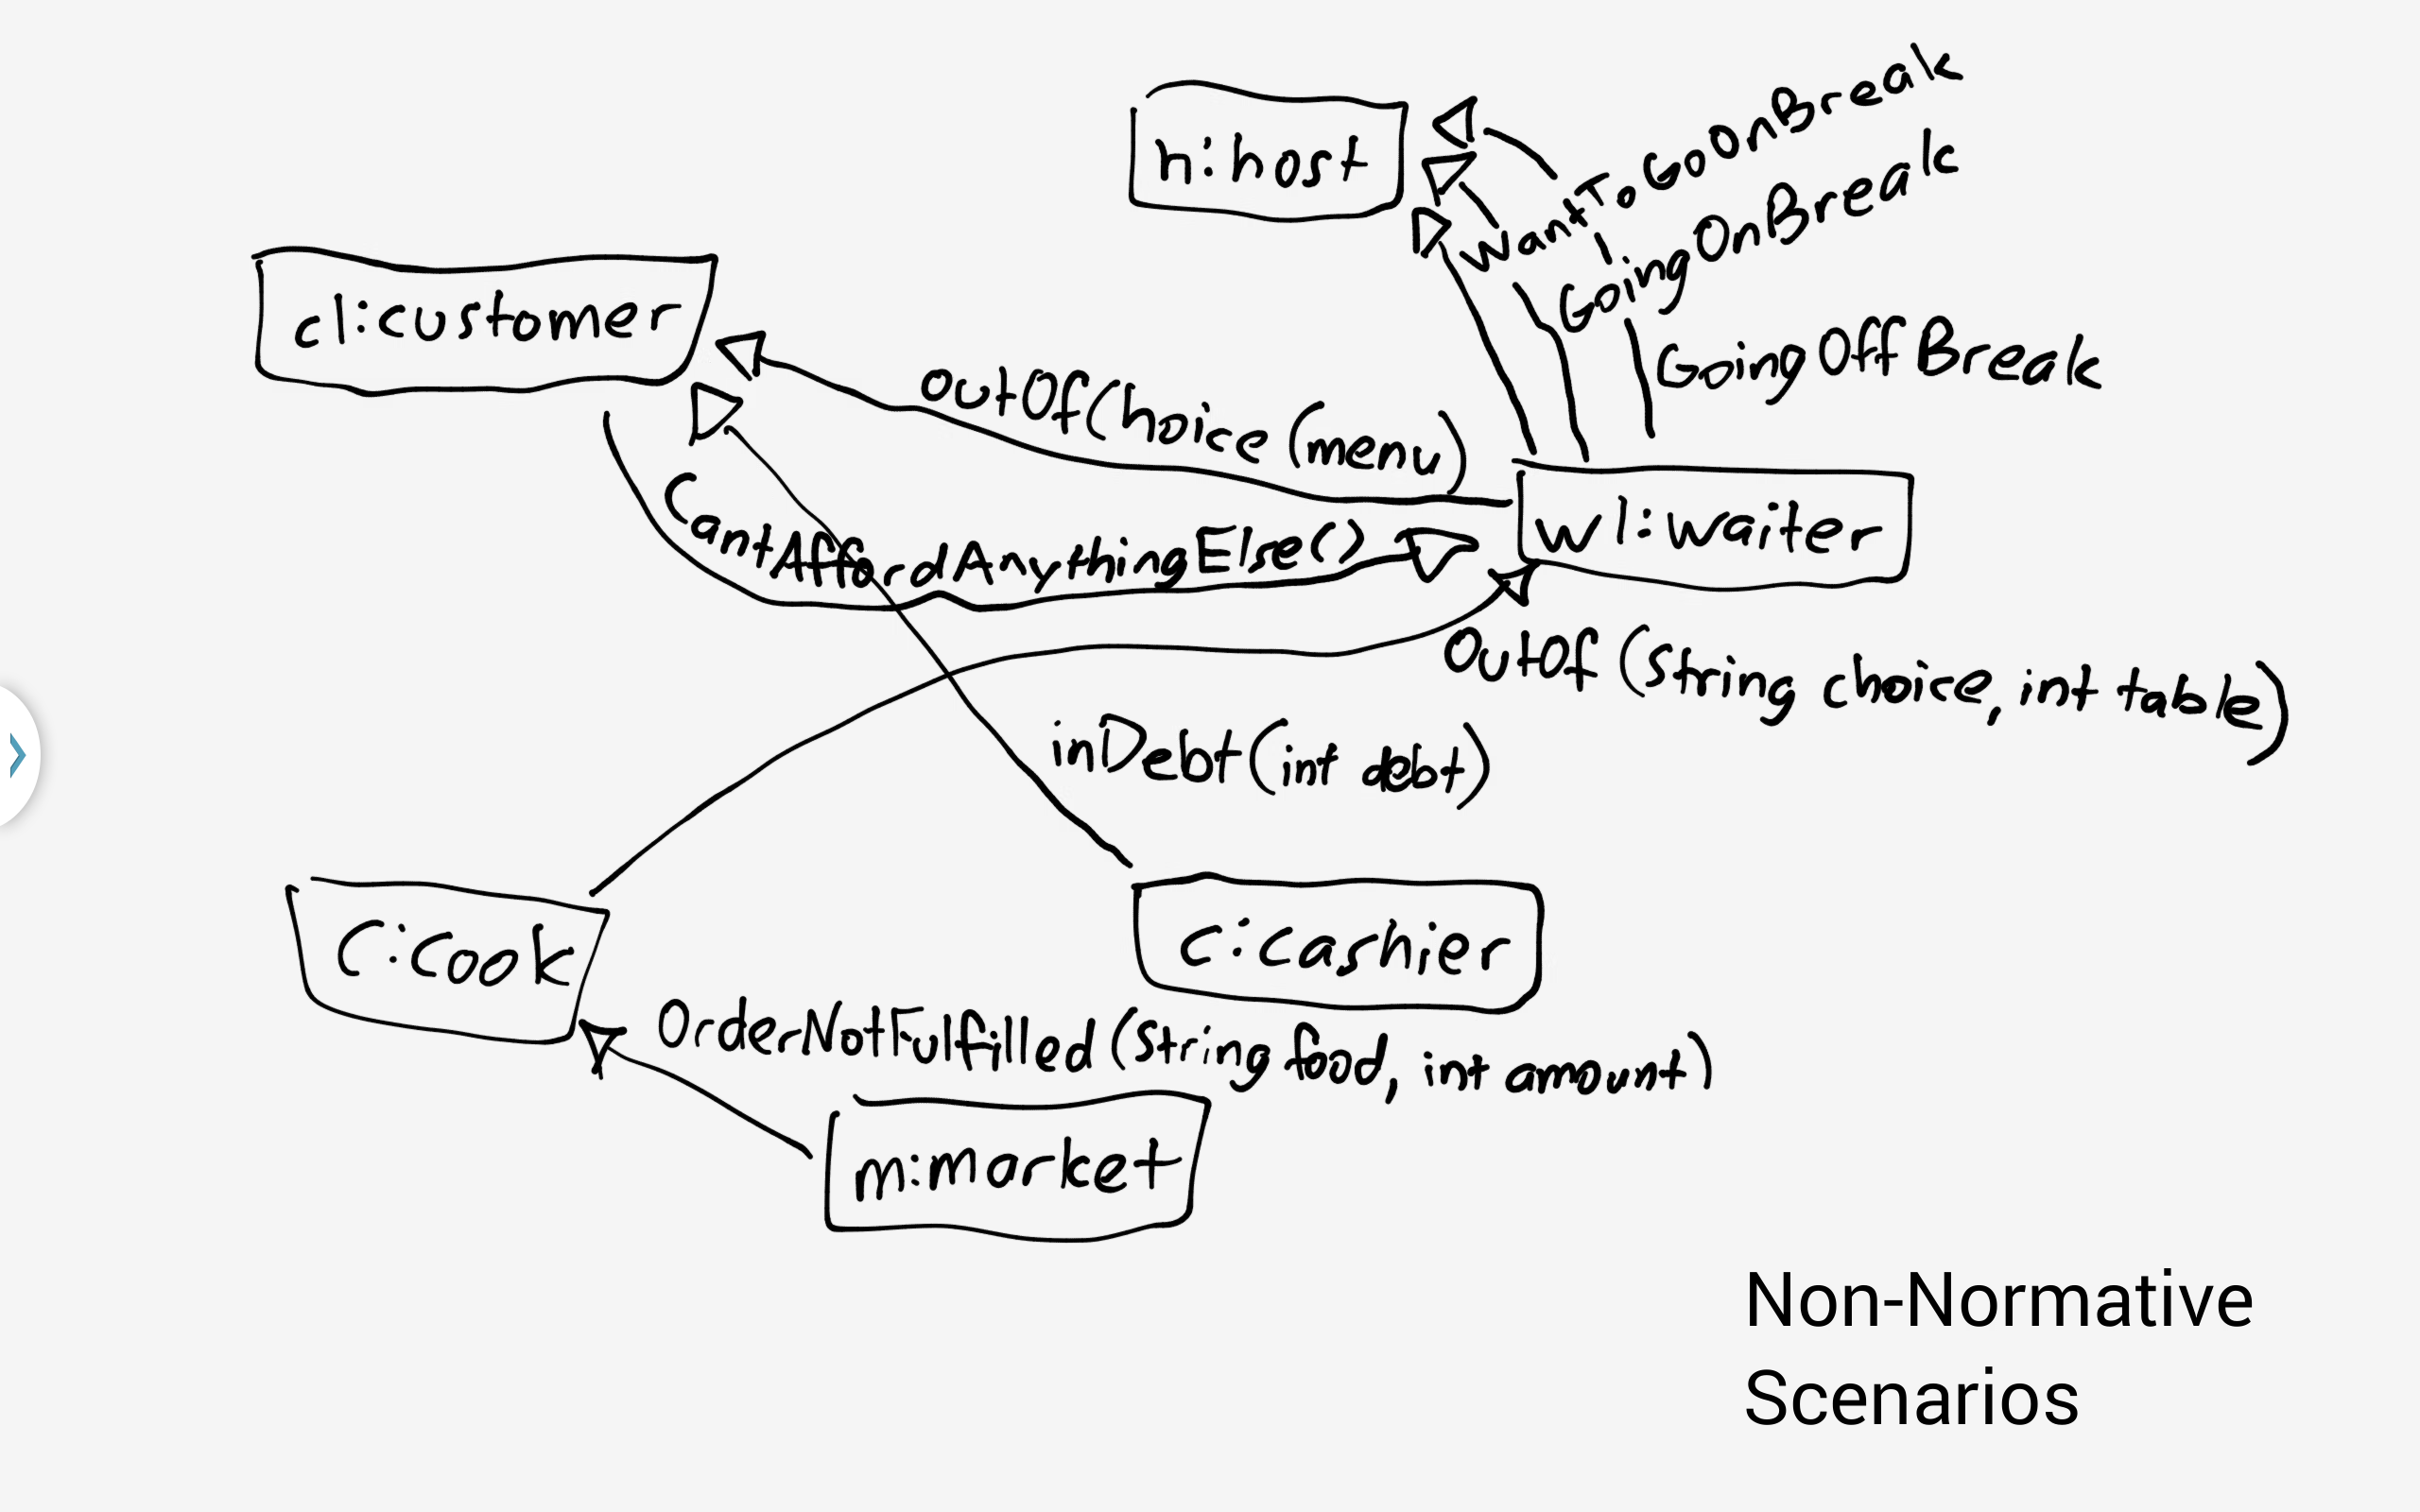 h:host
WantToGoOnBreak
GoingOnBreak
GoingOffBreak
c1:customer
OutOfChoice (menu)
CantAffordAnythingElse()
w1:waiter
OutOf (String choice, int table)
inDebt(int debt)
C:Cook
c:cashier
OrderNotFulfilled (String food, int amount)
m:market
Non-Normative
Scenarios